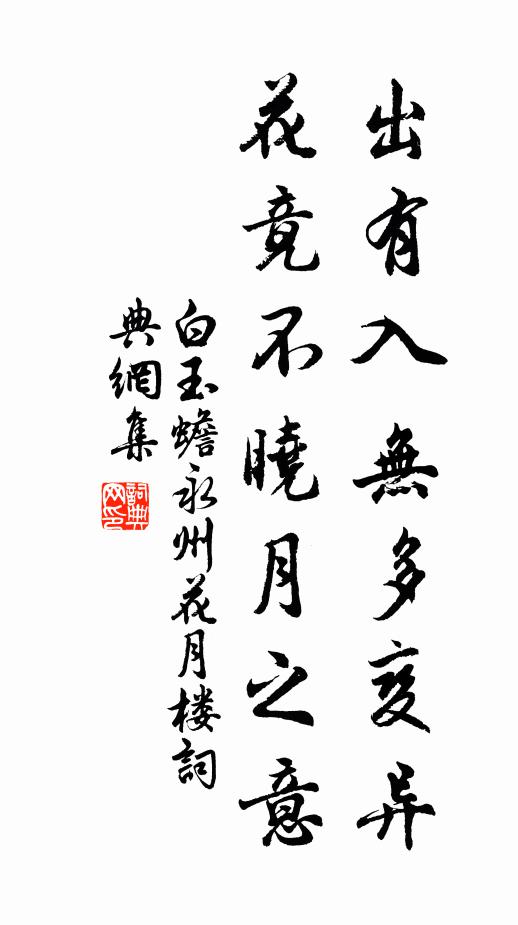 出有入無多变异
花竟不曉月之意
白玉蟾永州花月楼詞
典網集
詞典
网印